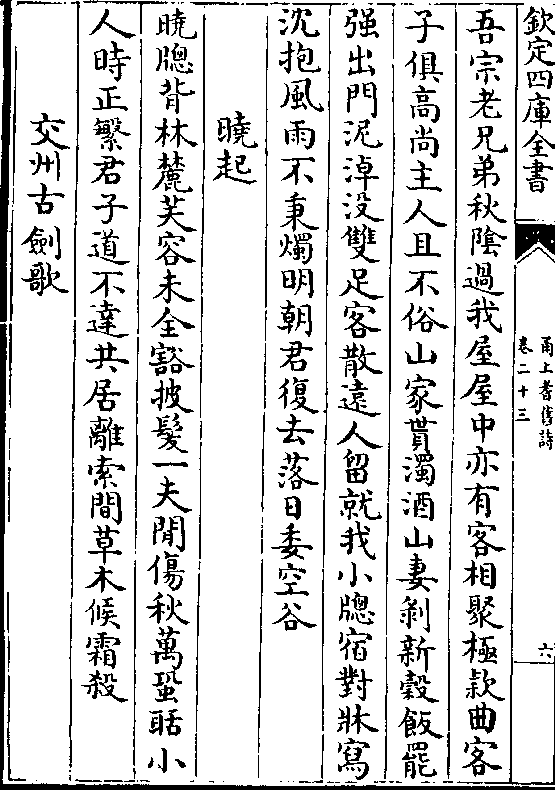 欽定四庫全書
甬上耆舊詩
卷二十三
六
吾宗老兄弟秋陰過我屋屋中亦有客相聚極款曲客
子俱高尚主人且不俗山家貰濁酒山妻剝新穀飯罷
强出門泥淖没雙足客散遠人留就我小牕宿對牀寫
沈抱風雨不秉燭明朝君復去落日委空谷
曉起
曉牕背林麓芙容未全豁披髮一夫閒傷秋萬蛩聒小
人時正繁君子道不達共居離索間草木候霜殺
交州古劍歌